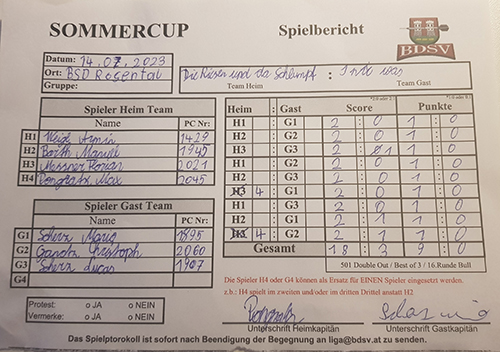 SOMMERCUP Spielbericht BDSV
Datum: 14.07.2023
Ort: BSD Rosental
Gruppe:
Die Riesen und da Schlumpf : I nix was
Team Heim Team Gast
Spieler Heim Team
Name PC Nr:
H1 Armin 1429
H2 Manuel 1945
H3 Messner Florian 2021
H4 Max 2045
Spieler Gast Team
Name PC Nr:
G1 Scherz Mario 1895
G2 Christoph 2060
G3 Scherz Lucas 1907
G4
Heim : Gast Score Punkte
H1 : G1 2 : 0 1 : 0
H2 : G2 2 : 0 1 : 0
H3 : G3 2 : 1 1 : 0
H1 : G2 2 : 0 1 : 0
H2 : G3 2 : 0 1 : 0
4 : G1 2 : 0 1 : 0
H1 : G3 2 : 0 1 : 0
H2 : G1 2 : 1 1 : 0
4 : G2 2 : 1 1 : 0
Gesamt 18 : 3 9 : 0
501 Double Out / Best of 3 / 16.Runde Bull
Die Spieler H4 oder G4 können als Ersatz für EINEN Spieler eingesetzt werden.
z.b.: H4 spielt im zweiten und/oder im dritten Drittel anstatt H2
Protest: o JA o NEIN
Vermerke: o JA o NEIN
Unterschrift Heimkapitän Unterschrift Gastkapitän
Das Spielprotokoll ist sofort nach Beendigung der Begegnung an liga@bdsv.at zu senden.